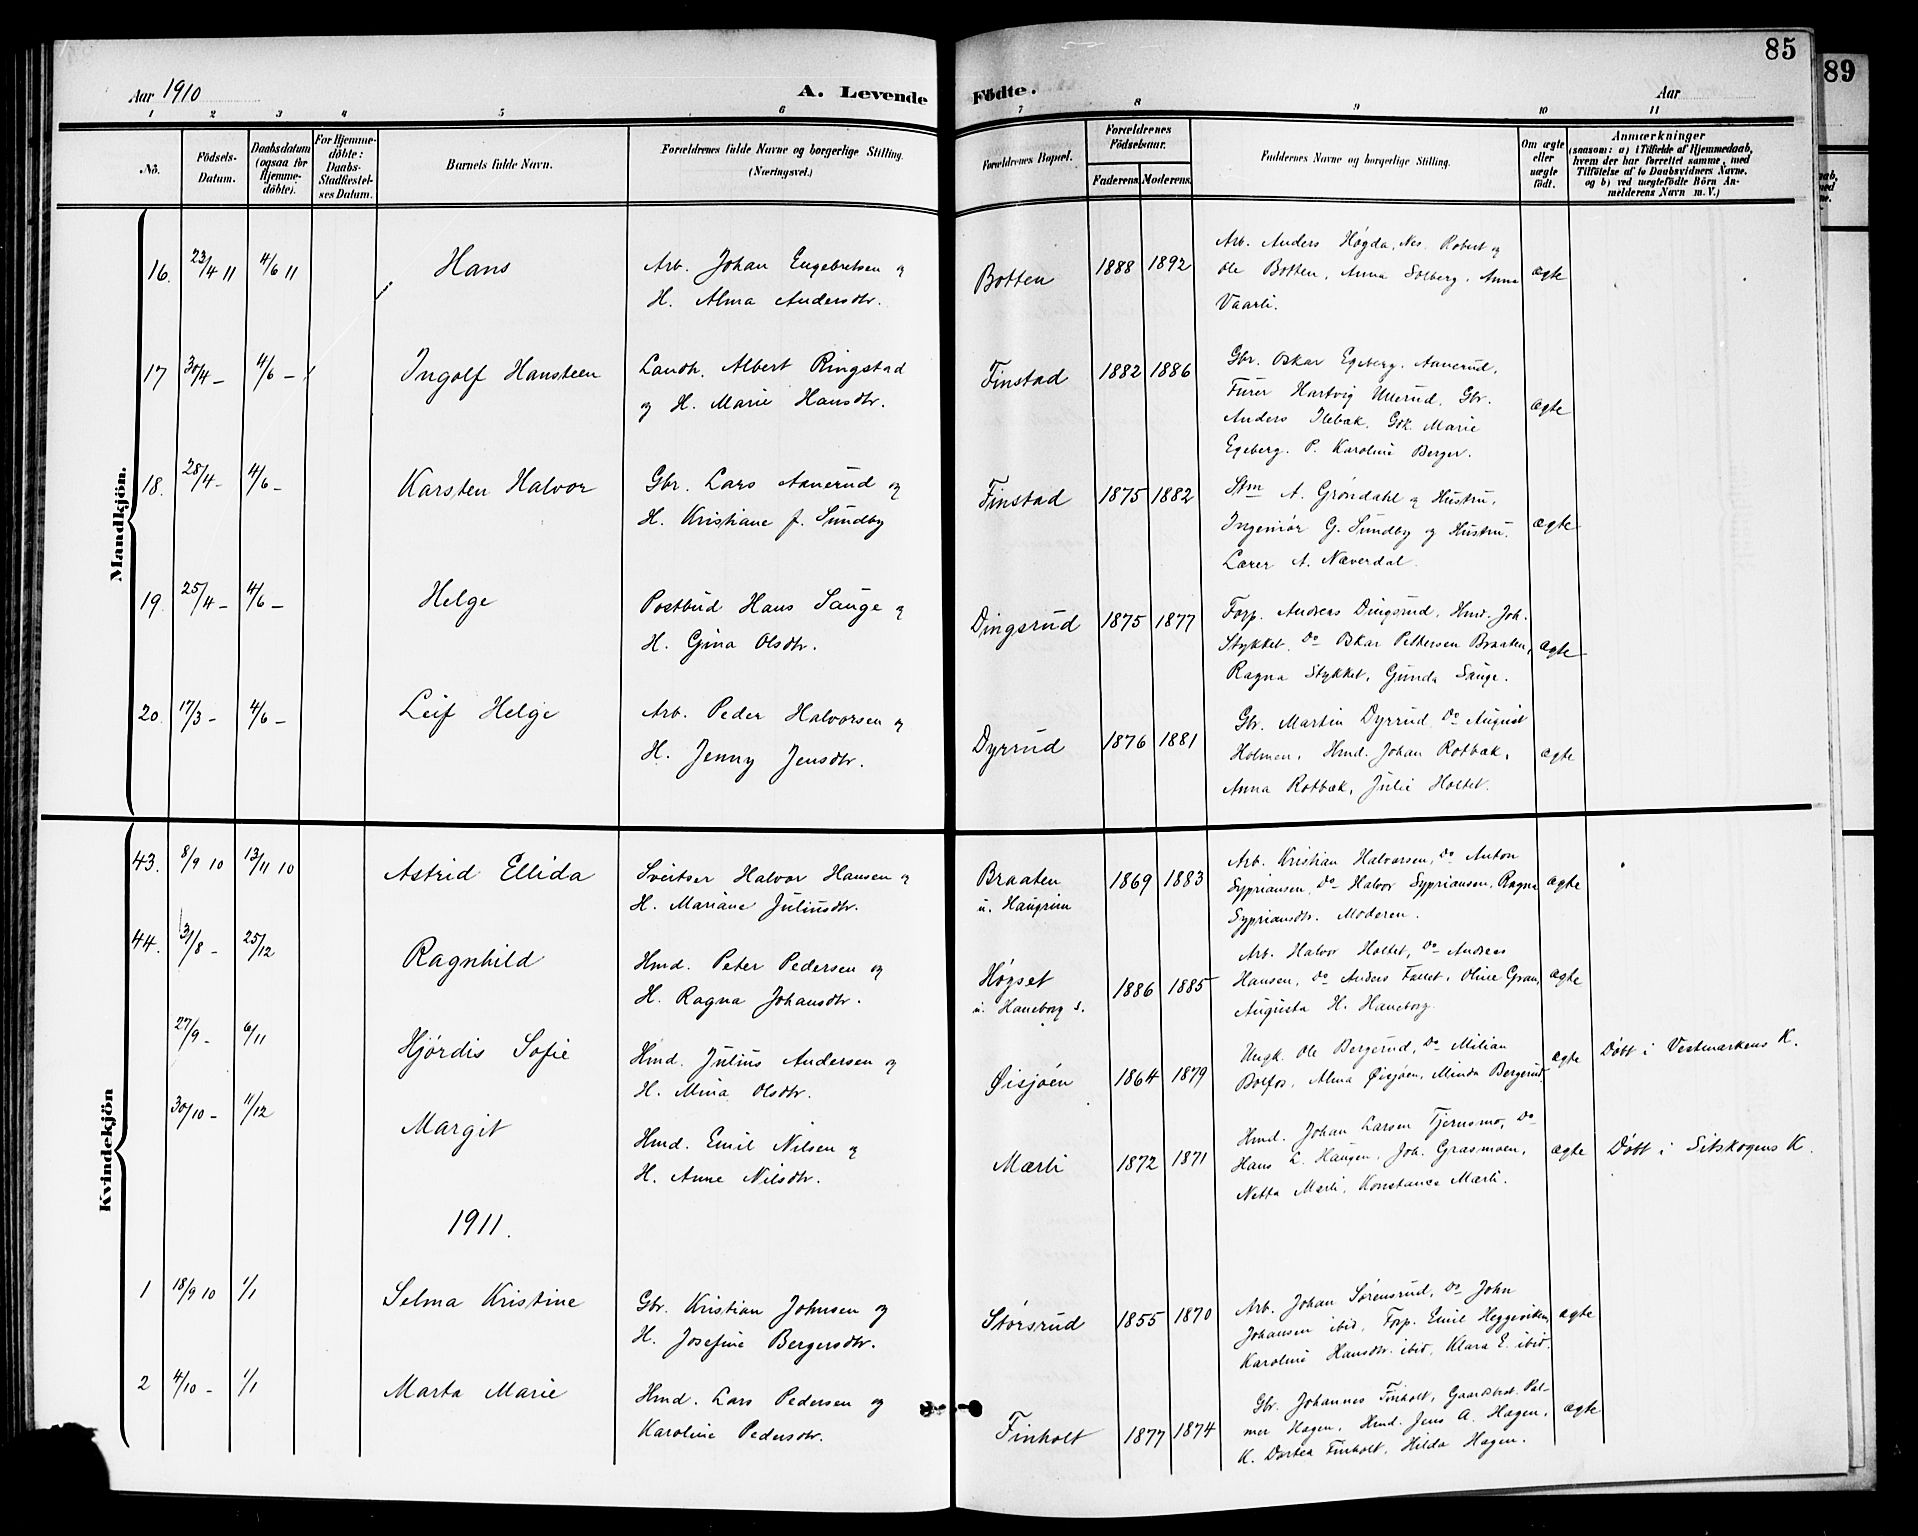 85
89
Aar 1910
A. Levende Födte.
Aar
1 2 3 4 5 6 7 8 9 10 11
No.
Födsels-Datum.
Daabsdatum (ogsaa for Hjemme-döbte).
For Hjemme-döbte: Daabs-Stadfæstel-ses Datum.
Barnets fulde Navn.
Forældrenes fulde Navne og borgerlige Stilling. (Næringsvei.)
Forældrenes Bopæl.
Forældrenes Födselsaar.
Faderens. Moderens.
Faddernes Navne og borgerlige Stilling.
Om ægte eller uægte födt.
Anmærkninger
(saasom: a) i Tilfælde af Hjemmedaab, hvem der har forrettet samme, med Tilföielse af to Daabsvidners Navne. og b) ved uægtefödte Börn An-melderens Navn m. V.)
Mandkjön.
16. 23/4 11 4/6 11 Hans
Arb. Johan Engebretsen og
H. Alma Andersdtr.
Botten 1888 1892
Arb. Anders Høgda, Nes. Robert og
Ole Botten, Anna Solberg. Anna
Vaarli.
ægte
17 30/4 - 4/6 - Ingolf Hansteen
Landh. Albert Ringstad
og H. Marie Hansdtr.
Finstad 1882 1886
Gbr. Oskar Egeberg. Aanerud.
Furer Hartvig Ullerud. Gbr.
Anders Ilebæk. Gbk. Marie
Egeberg. P. Karoline Berger.
ægte
18. 28/4 - 4/6 - Karsten Halvor
Gbr. Lars Aanerud og
H. Kristiane f. Sundby
Finstad 1875 1882
Stm A. Grøndahl og Hustru,
Ingeniør G. Sundby og Hustru.
Lærer A. Næverdal.
ægte
19. 25/4 - 4/6 - Helge
Postbud Hans Sauge og
H. Gina Olsdtr.
Dingsrud 1875 1877
Forp. Anders Dingsrud, Hmd. Joh.
Stykket. Do Oskar Pettersen Braaten,
Ragna Stykket, Gunda Sauge.
ægte
20. 17/3 - 4/6 - Leif Helge
Arb. Peder Halvorsen og
H. Jenny Jensdtr.
Dyrrud 1876 1881
Gbr. Martin Dyrrud. Do August
Holmen, Hmd. Johan Rotbæk,
Anna Rotbæk, Julie Holtet.
ægte
Kvindekjön
43. 8/9 10 13/11 10 Astrid Ellida
Sveitser Halvor Hansen og
H. Mariane Juliusdtr.
Braaten
u. Haugrim
1869 1883
Arb. Kristian Halvorsen, Do Anton
Sypriansen, Do Halvor Sypriansen, Ragna
Sypriansdtr. Moderen.
ægte
44. 31/8 - 25/12 Ragnhild
Hmd. Peter Pedersen og
H. Ragna Johansdtr.
Høgset
u. Haneborg s.
1886 1885
Arb. Halvor Holtet, Do Andreas
Hansen, Do Anders Fallet, Oline Gran,
Augusta H. Haneborg.
ægte
27/9 - 6/11 Hjördis Sofie
Hmd. Julius Andersen og
H. Mina Olsdtr.
Øisjøen 1864 1879
Ungk. Ole Bergerud, Do Milian
Bolfos, Alma Øisjøen, Minda Bergerud.
ægte
Döbt i Vestmarkens K.
30/10 - 11/12 Margit
Hmd. Emil Nilsen og
H. Anne Nilsdtr.
Mærli 1872 1871
Hmd. Johan Larsen Tjernsmo, Do
Hans L. Haugen, Joh. Grasmoen,
Netta Mærli, Konstance Mærli.
ægte
Döbt i Sitskogens K.
1911.
1 18/9 10 1/1 Selma Kristine
Gbr. Kristian Johnsen og
H. Josefine Bergersdtr.
Storsrud 1855 1870
Arb. Johan Sørensrud, Do John
Johansen ibid, Forp. Emil Heggeviken,
Karoline Hansdtr. ibid, Klara E. ibid.
ægte
2 4/10 - 1/1 Marta Marie
Hmd. Lars Pedersen og
Karoline Pedersdtr.
Finholt 1877 1874
Gbr. Johannes Finholt, Gaardbest. Pal-
mer Hagen, Hmd. Jens A. Hagen,
K. Dortea Finholt, Hilda Hagen.
ægte